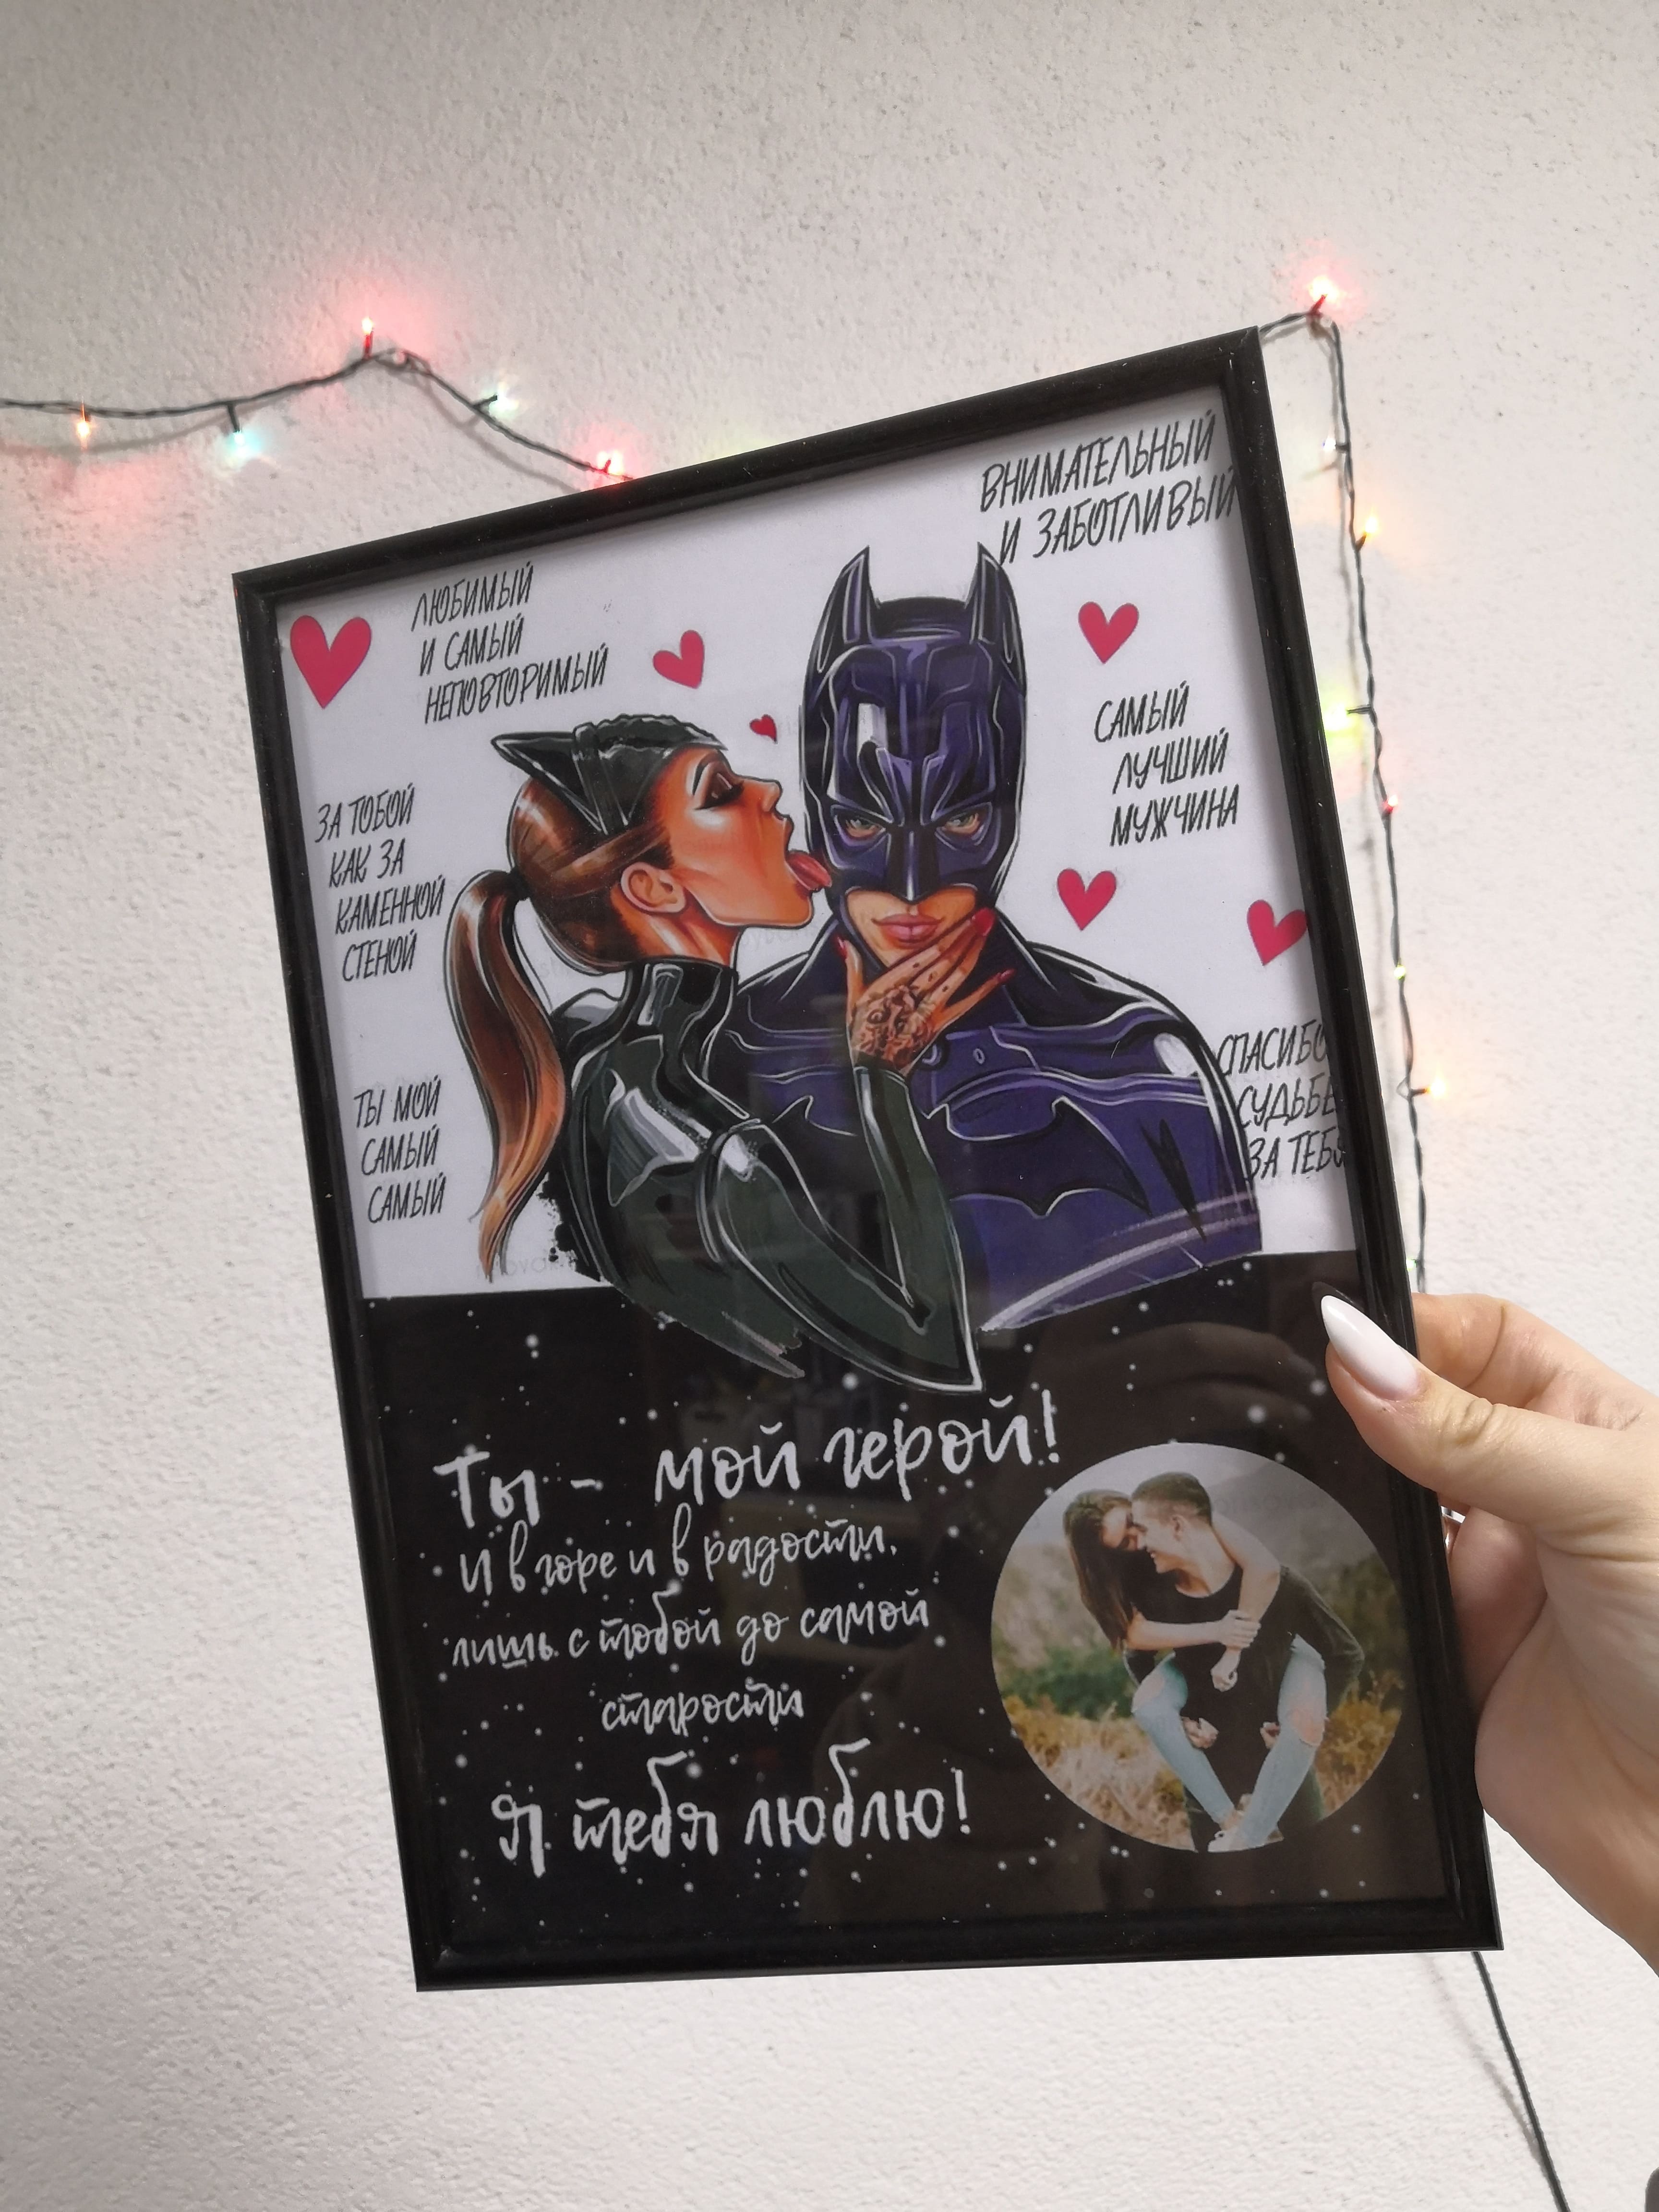 ВНИМАТЕЛЬНЫЙ
И ЗАБОТЛИВЫЙ
ЛЮБИМЫЙ
И САМЫЙ
НЕПОВТОРИМЫЙ
САМЫЙ
ЛУЧШИЙ
МУЖЧИНА
ЗА ТОБОЙ
КАК ЗА
КАМЕННОЙ
СТЕНОЙ
СПАСИБО
СУДЬБЕ
ЗА ТЕБЯ
ТЫ МОЙ
САМЫЙ
САМЫЙ
Ты - мой герой!
И в горе и в радости,
лишь с тобой до самой
старости
Я тебя люблю!